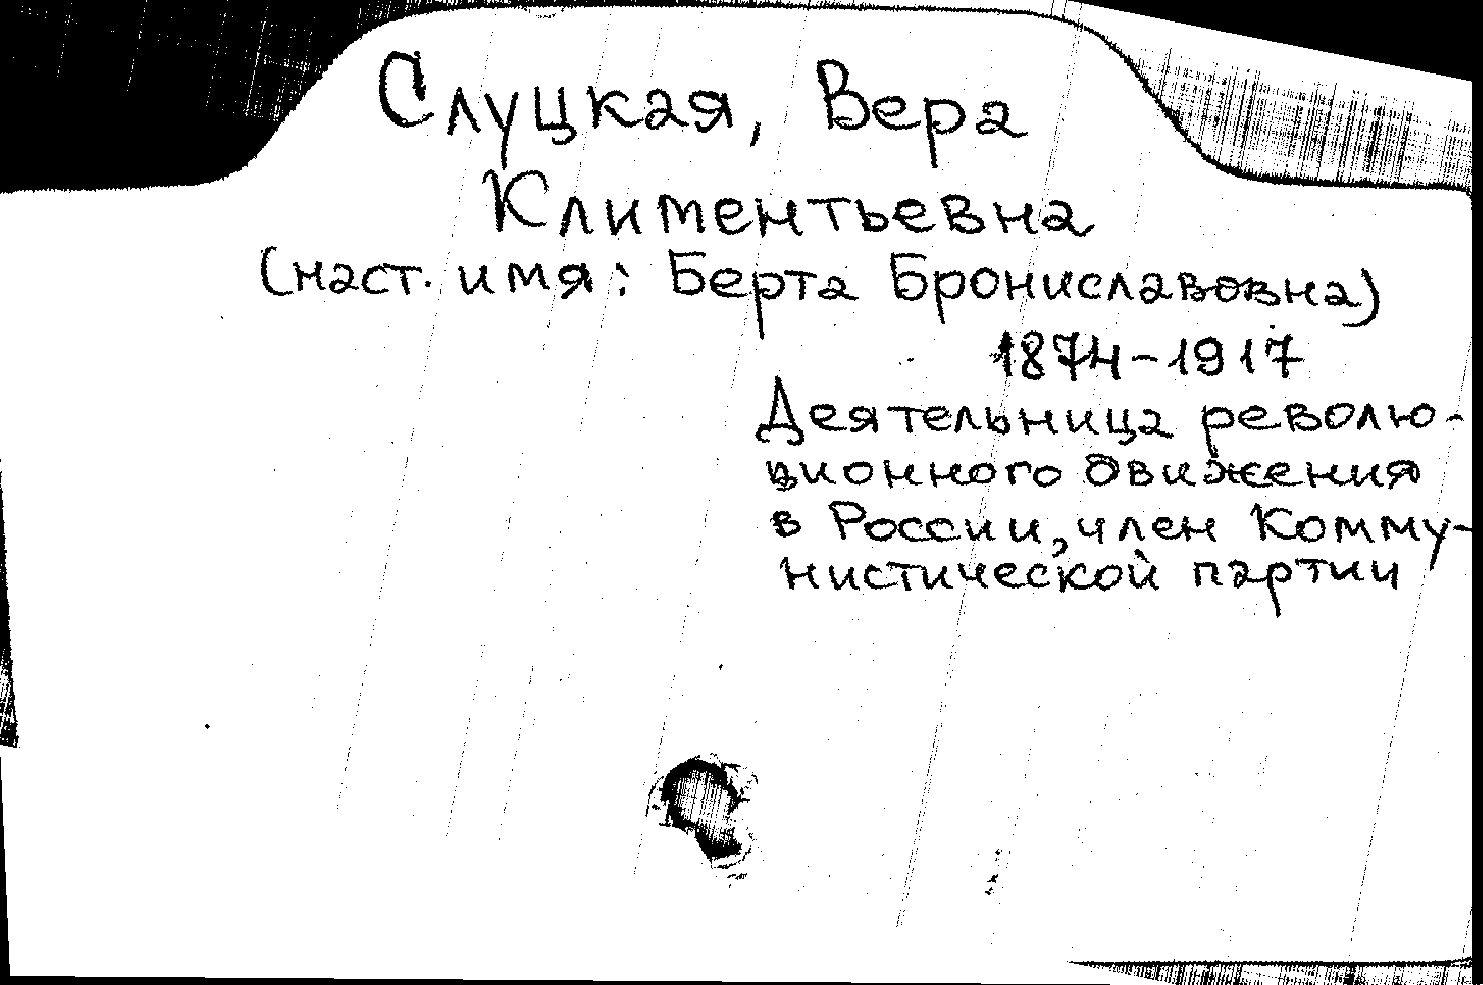 Слуцкая, Вера
Климентьевна
(наст. имя: Берта Брониславовна)
1874-1917
Деятельница револю-
ционного движения
в России, член Комму-
нистической партии